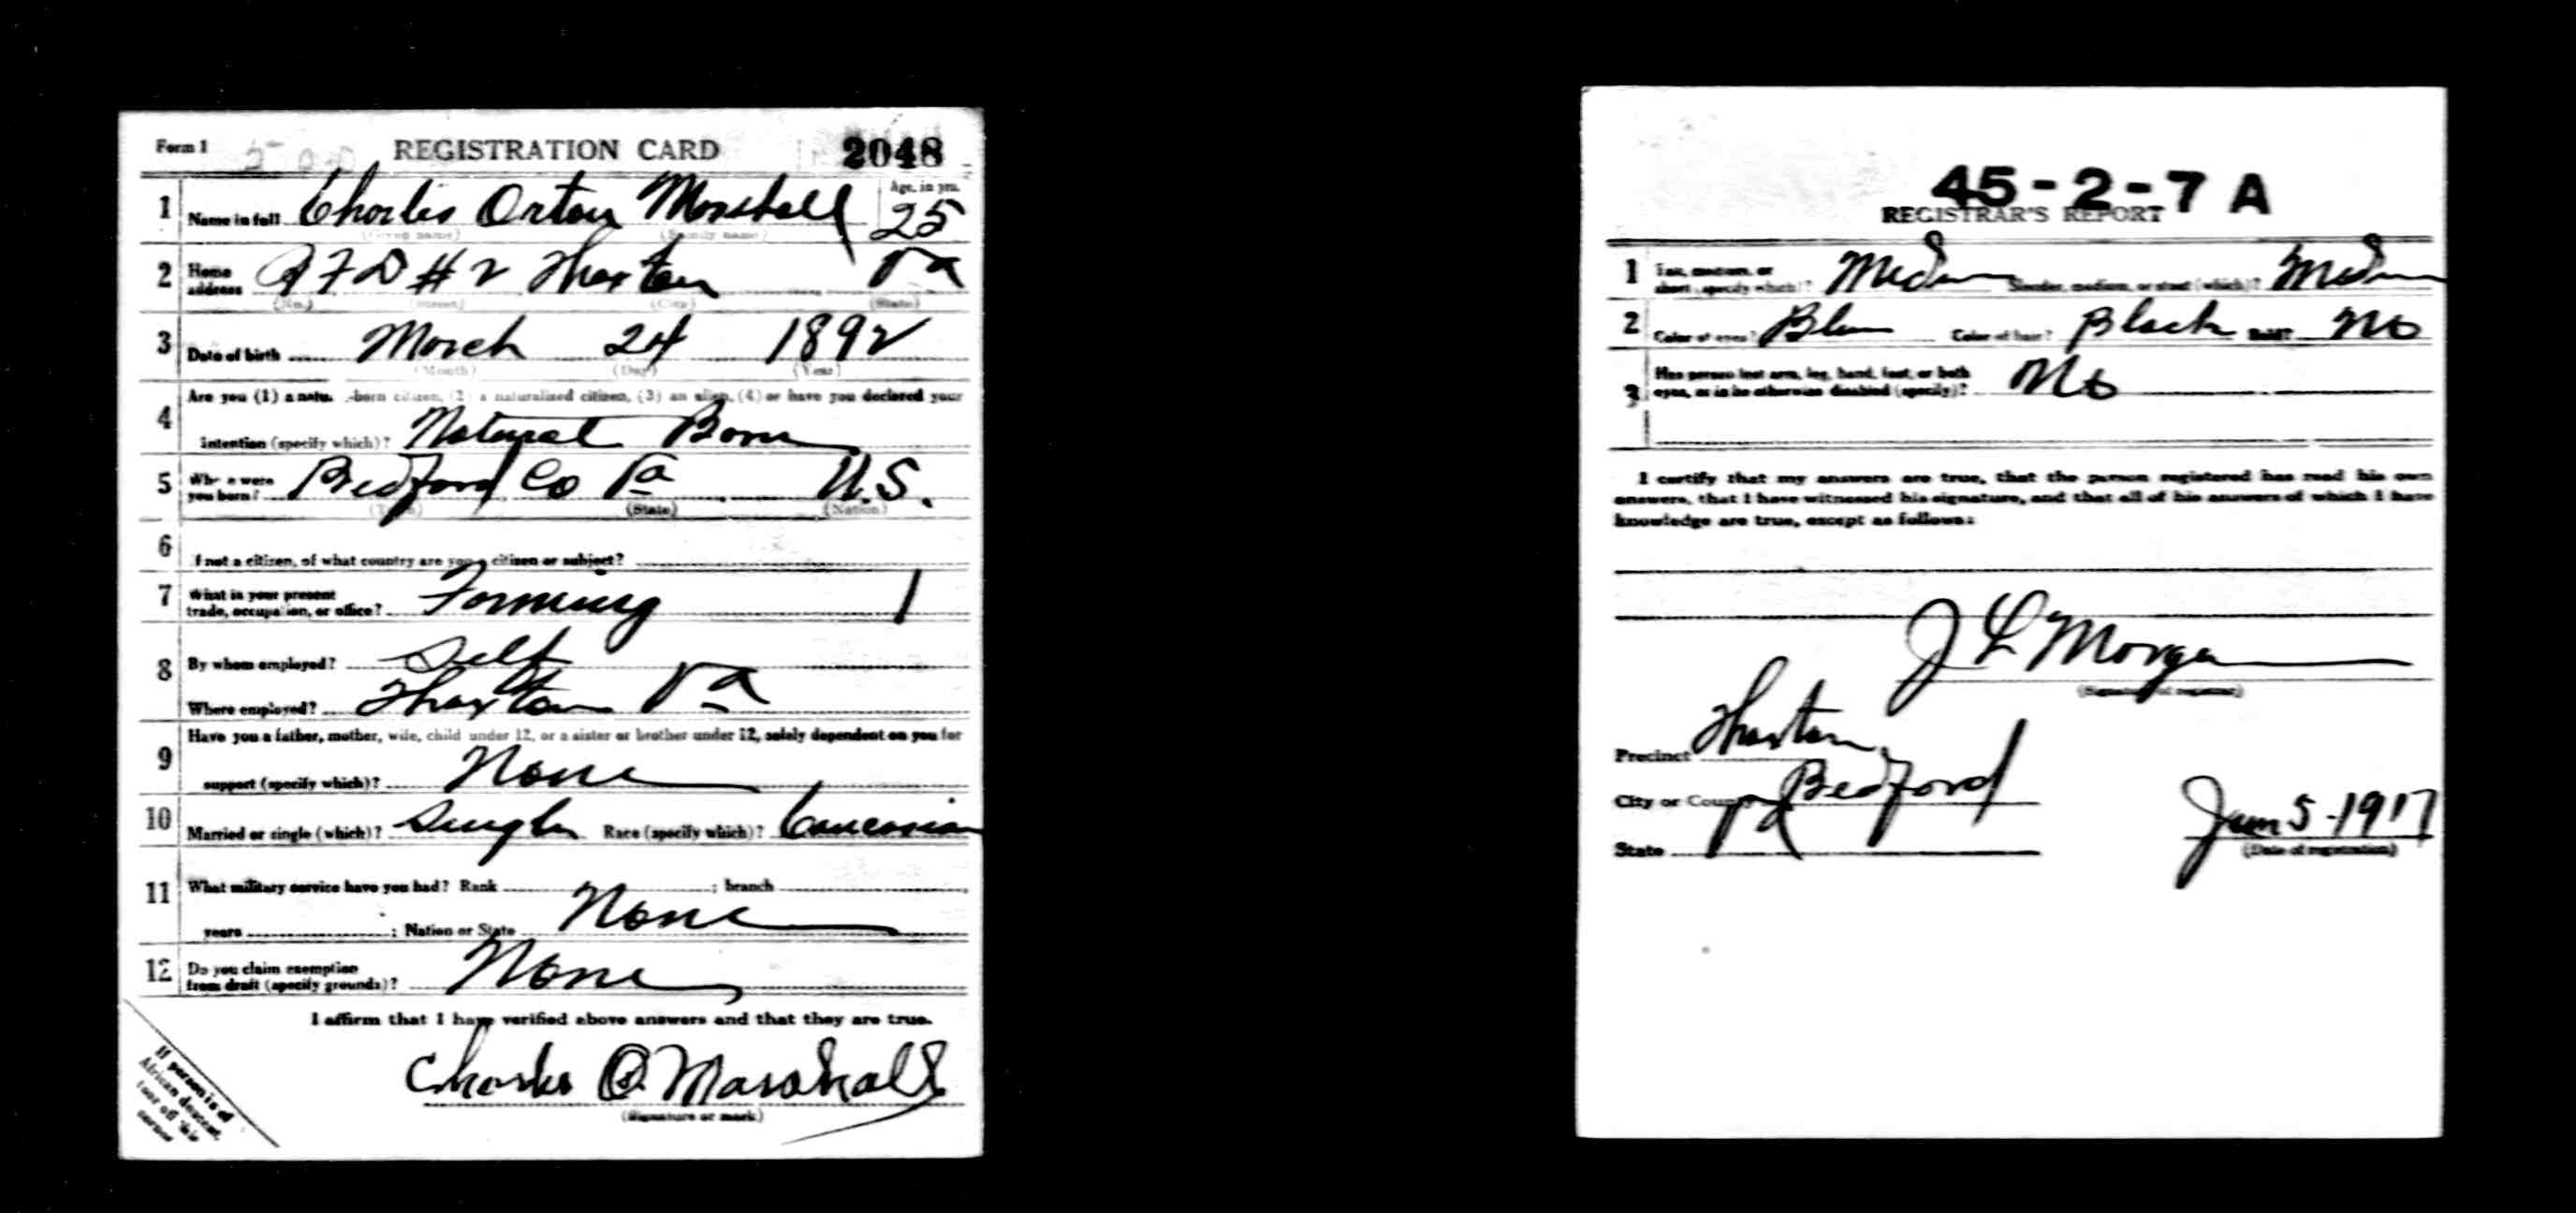 Form 1 REGISTRATION CARD 2048
1 Name in full Charles Orton Marshall Age, in yrs. 25
(Given name) (Family name)
2 Home address R F D # 2 Thaxton Va
(No.) (Street) (City) (State)
3 Date of birth March 24 1892
(Month) (Day) (Year)
Are you (1) a natu -born citizen, (2) a naturalized citizen, (3) an alien, (4) or have you declared your
4 intention (specify which)? Natural Born
5 Where were you born? Bedford Co Va U.S.
(Town) (State) (Nation)
6 If not a citizen, of what country are you a citizen or subject?
7 What is your present trade, occupation, or office? Farming 1
8 By whom employed? Self
Where employed? Thaxton Va
Have you a father, mother, wife, child under 12, or a sister or brother under 12, solely dependent on you for
9 support (specify which)? None
10 Married or single (which)? Single Race (specify which)? Caucasian
11 What military service have you had? Rank ; branch
years ; Nation or State None
12 Do you claim exemption from draft (specify grounds)? None
I affirm that I have verified above answers and that they are true.
Charles O. Marshall
(Signature or mark)
If person is of
African descent,
tear off this
corner
45-2-7 A
REGISTRAR'S REPORT
1 Tall, medium, or short (specify which)? Medium Slender, medium, or stout (which)? Medium
2 Color of eyes? Blue Color of hair? Black Bald? No
3 Has person lost arm, leg, hand, foot, or both eyes, or is he otherwise disabled (specify)? No
I certify that my answers are true, that the person registered has read his own
answers, that I have witnessed his signature, and that all of his answers of which I have
knowledge are true, except as follows:
J L Morgan
(Signature of registrar)
Precinct Thaxton
City or County Bedford
State Va
June 5-1917
(Date of registration)